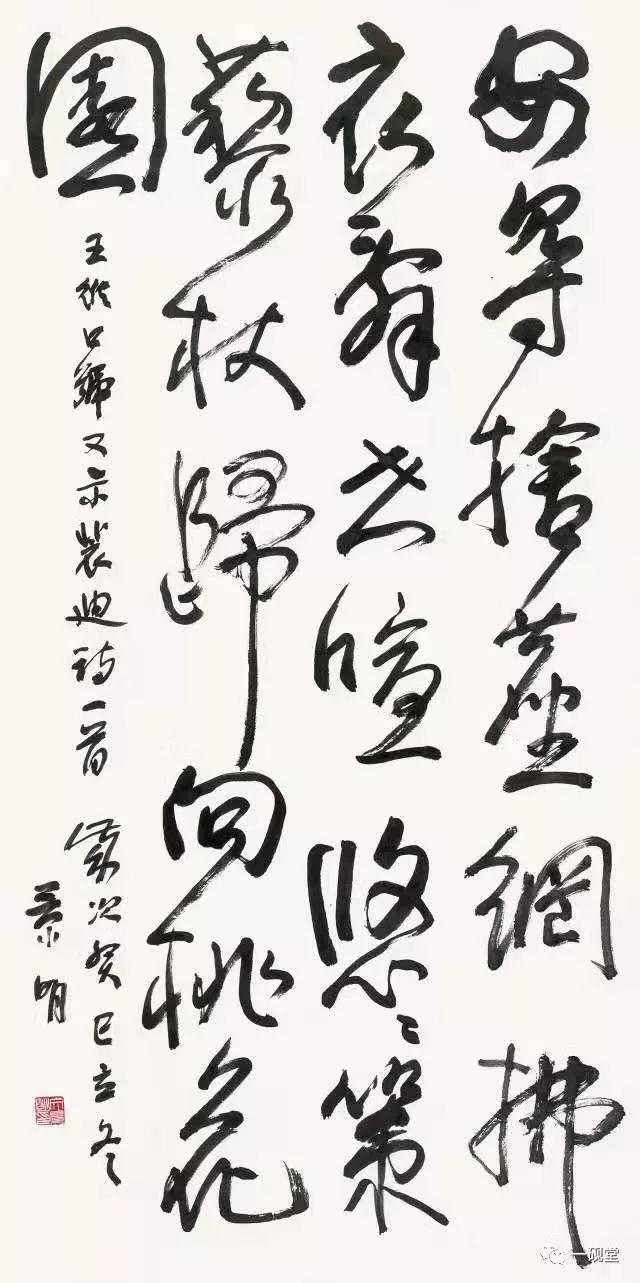 安得捨塵網拂
衣辭世喧悠〻策
藜杖歸向桃花
園
王維口號又示裴迪詩一首 歲次癸巳立冬
景明
一砚堂